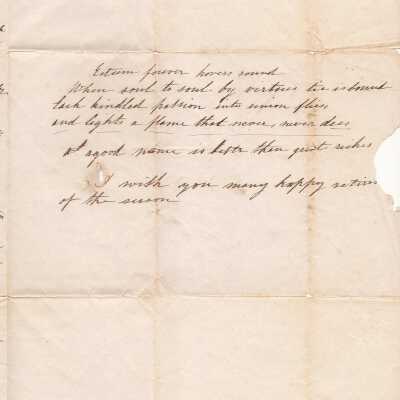 Esteem forever hovers round
When soul to soul by vertues tie is bound
Each kindled passion into union flies
and lights a flame that never, never dies
A good name is bettr then great riches
I wish you many happy returns
of the season